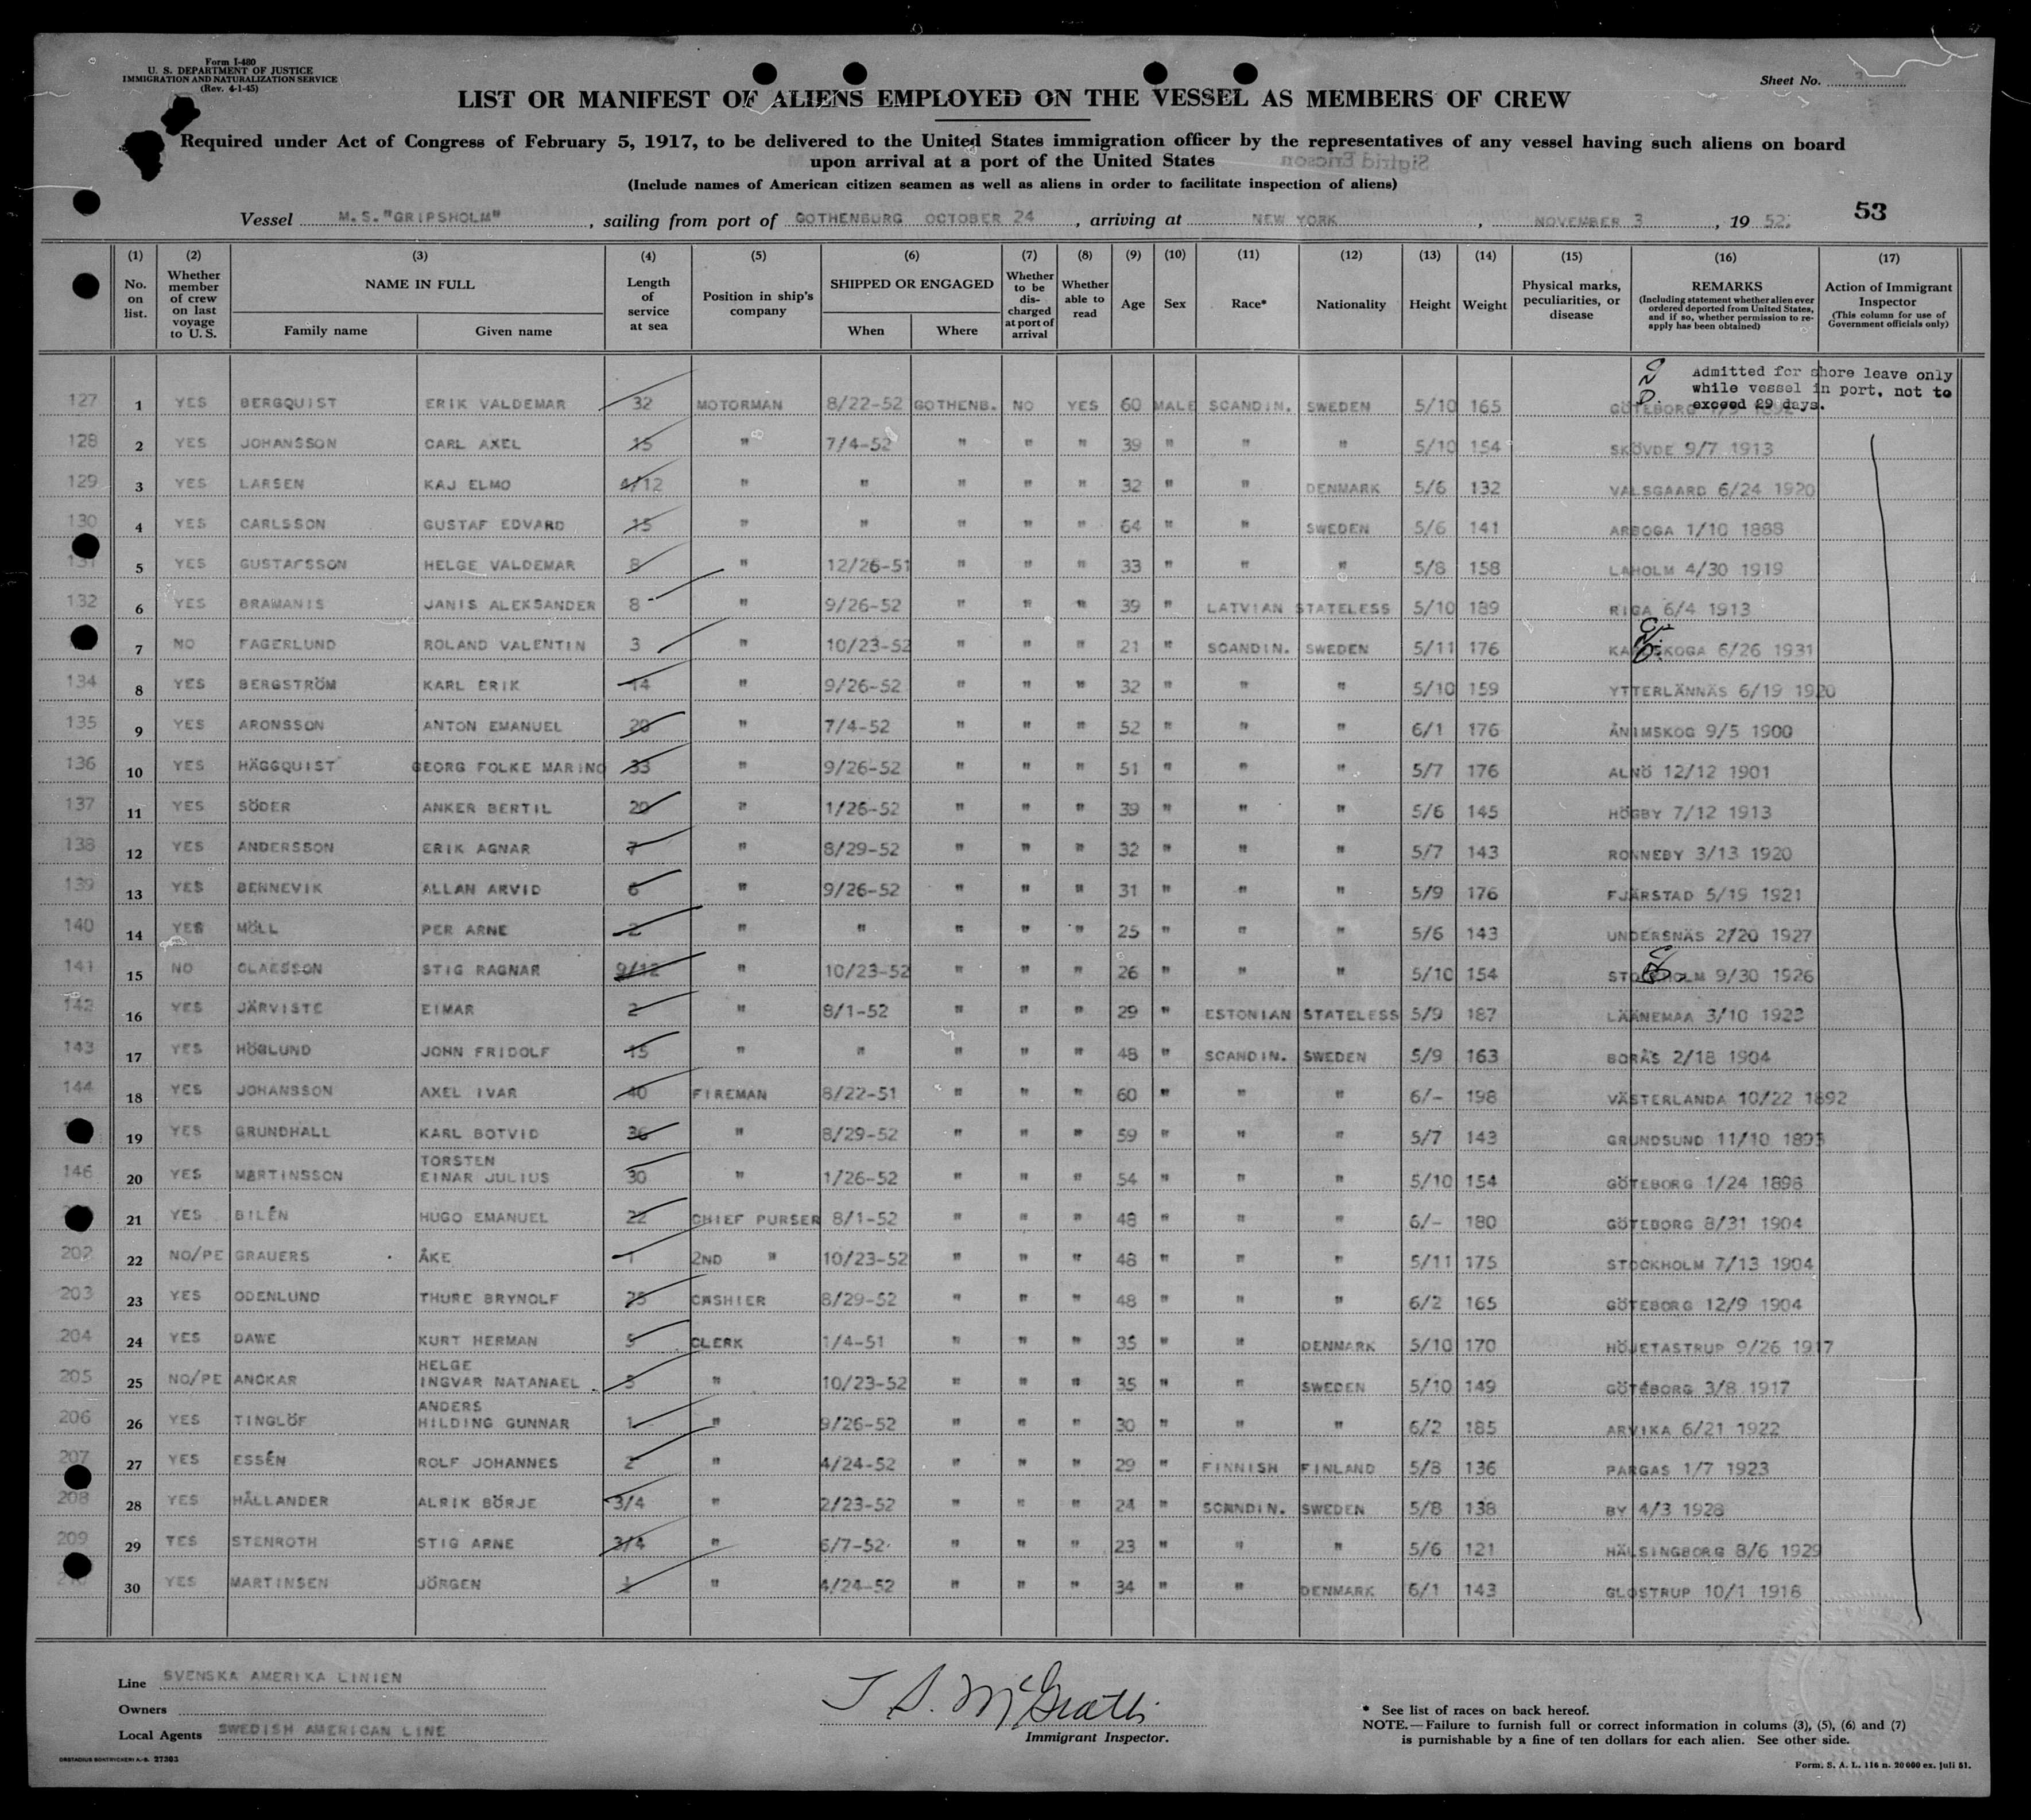 Form I-480
U. S. DEPARTMENT OF JUSTICE
IMMIGRATION AND NATURALIZATION SERVICE
(Rev. 4-1-45)
Sheet No.
LIST OR MANIFEST OF ALIENS EMPLOYED ON THE VESSEL AS MEMBERS OF CREW
Required under Act of Congress of February 5, 1917, to be delivered to the United States immigration officer by the representatives of any vessel having such aliens on board
upon arrival at a port of the United States
Sigfrid Ericson
(Include names of American citizen seamen as well as aliens in order to facilitate inspection of aliens)
53
Vessel M.S."GRIPSHOLM", sailing from port of GOTHENBURG OCTOBER 24, arriving at NEW YORK, NOVEMBER 3, 19 52.
(1) No. on list. (2) Whether member of crew on last voyage to U. S. (3) NAME IN FULL Family name Given name (4) Length of service at sea (5) Position in ship's company (6) SHIPPED OR ENGAGED When Where (7) Whether to be discharged at port of arrival (8) Whether able to read (9) Age (10) Sex (11) Race* (12) Nationality (13) Height (14) Weight (15) Physical marks, peculiarities, or disease (16) REMARKS (Including statement whether alien ever ordered deported from United States, and if so, whether permission to reapply has been obtained) (17) Action of Immigrant Inspector (This column for use of Government officials only)
Admitted for shore leave only
while vessel in port, not to
exceed 29 days.
127 1 YES BERGQUIST ERIK VALDEMAR 32 MOTORMAN 8/22-52 GOTHENB. NO YES 60 MALE SCANDIN. SWEDEN 5/10 165 GÖTEBORG
128 2 YES JOHANSSON CARL AXEL 15 " 7/4-52 " " " 39 " " " 5/10 154 SKÖVDE 9/7 1913
129 3 YES LARSEN KAJ ELMO 4/12 " " " " " 32 " " DENMARK 5/6 132 VALSGAARD 6/24 1920
130 4 YES CARLSSON GUSTAF EDVARD 15 " " " " " 64 " " SWEDEN 5/6 141 ARBOGA 1/10 1888
131 5 YES GUSTAFSSON HELGE VALDEMAR 8 " 12/26-51 " " " 33 " " " 5/8 158 LAHOLM 4/30 1919
132 6 YES BRAMANIS JANIS ALEKSANDER 8 " 9/26-52 " " " 39 " LATVIAN STATELESS 5/10 189 RIGA 6/4 1913
7 NO FAGERLUND ROLAND VALENTIN 3 " 10/23-52 " " " 21 " SCANDIN. SWEDEN 5/11 176 KARLSKOGA 6/26 1931
134 8 YES BERGSTRÖM KARL ERIK 14 " 9/26-52 " " " 32 " " " 5/10 159 YTTERLÄNNÄS 6/19 1920
135 9 YES ARONSSON ANTON EMANUEL 20 " 7/4-52 " " " 52 " " " 6/1 176 ÄNIMSKOG 9/5 1900
136 10 YES HÄGGQUIST GEORG FOLKE MARINO 33 " 9/26-52 " " " 51 " " " 5/7 176 ALNÖ 12/12 1901
137 11 YES SÖDER ANKER BERTIL 20 " 1/26-52 " " " 39 " " " 5/6 145 HÖGBY 7/12 1913
138 12 YES ANDERSSON ERIK AGNAR 7 " 8/29-52 " " " 32 " " " 5/7 143 RONNEBY 3/13 1920
139 13 YES BENNEVIK ALLAN ARVID 6 " 9/26-52 " " " 31 " " " 5/9 176 FJÄRSTAD 5/19 1921
140 14 YES MÖLL PER ARNE 2 " " " " " 25 " " " 5/6 143 UNDERSNÄS 2/20 1927
141 15 NO CLAESSON STIG RAGNAR 9/12 " 10/23-52 " " " 26 " " " 5/10 154 STOCKHOLM 9/30 1926
142 16 YES JÄRVISTE EIMAR 2 " 8/1-52 " " " 29 " ESTONIAN STATELESS 5/9 187 LÄÄNEMAA 3/10 1923
143 17 YES HÖGLUND JOHN FRIDOLF 15 " " " " " 48 " SCANDIN. SWEDEN 5/9 163 BORÅS 2/18 1904
144 18 YES JOHANSSON AXEL IVAR 40 FIREMAN 8/22-51 " " " 60 " " " 6/- 198 VÄSTERLANDA 10/22 1892
19 YES GRUNDHALL KARL BOTVID 36 " 8/29-52 " " " 59 " " " 5/7 143 GRUNDSUND 11/10 1893
146 20 YES MARTINSSON TORSTEN EINAR JULIUS 30 " 1/26-52 " " " 54 " " " 5/10 154 GÖTEBORG 1/24 1898
21 YES BILÉN HUGO EMANUEL 22 CHIEF PURSER 8/1-52 " " " 48 " " " 6/- 180 GÖTEBORG 8/31 1904
202 22 NO/PE GRAUERS ÅKE 1 2ND " 10/23-52 " " " 48 " " " 5/11 175 STOCKHOLM 7/13 1904
203 23 YES ODENLUND THURE BRYNOLF 25 CASHIER 8/29-52 " " " 48 " " " 6/2 165 GÖTEBORG 12/9 1904
204 24 YES DAWE KURT HERMAN 5 CLERK 1/4-51 " " " 35 " " DENMARK 5/10 170 HÖJETASTRUP 9/26 1917
205 25 NO/PE ANCKAR HELGE INGVAR NATANAEL 3 " 10/23-52 " " " 35 " " SWEDEN 5/10 149 GÖTEBORG 3/8 1917
206 26 YES TINGLÖF ANDERS HILDING GUNNAR 1 " 9/26-52 " " " 30 " " " 6/2 185 ARVIKA 6/21 1922
207 27 YES ESSÉN ROLF JOHANNES 2 " 4/24-52 " " " 29 " FINNISH FINLAND 5/8 136 PARGAS 1/7 1923
208 28 YES HÅLLANDER ALRIK BÖRJE 3/4 " 2/23-52 " " " 24 " SCANDIN. SWEDEN 5/8 138 BY 4/3 1928
209 29 YES STENROTH STIG ARNE 3/4 " 6/7-52 " " " 23 " " " 5/6 121 HÄLSINGBORG 8/6 1929
30 YES MARTINSEN JÖRGEN ½ " 4/24-52 " " " 34 " " DENMARK 6/1 143 GLOSTRUP 10/1 1918
Line SVENSKA AMERIKA LINIEN
Owners
Local Agents SWEDISH AMERICAN LINE
T S. McGrath
Immigrant Inspector.
* See list of races on back hereof.
NOTE.—Failure to furnish full or correct information in colums (3), (5), (6) and (7)
is purnishable by a fine of ten dollars for each alien. See other side.
ORSTADIUS BOKTRYCKERI A.-B. 27303
Form. S. A. L. 116 n. 20 000 ex. juli 51.